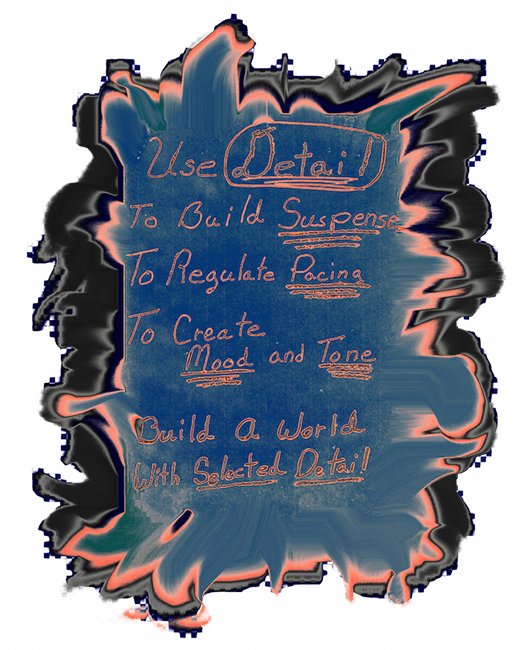 Use Detail
To Build Suspense
To Regulate Pacing
To Create
Mood and Tone
Build a World
With Selected Detail